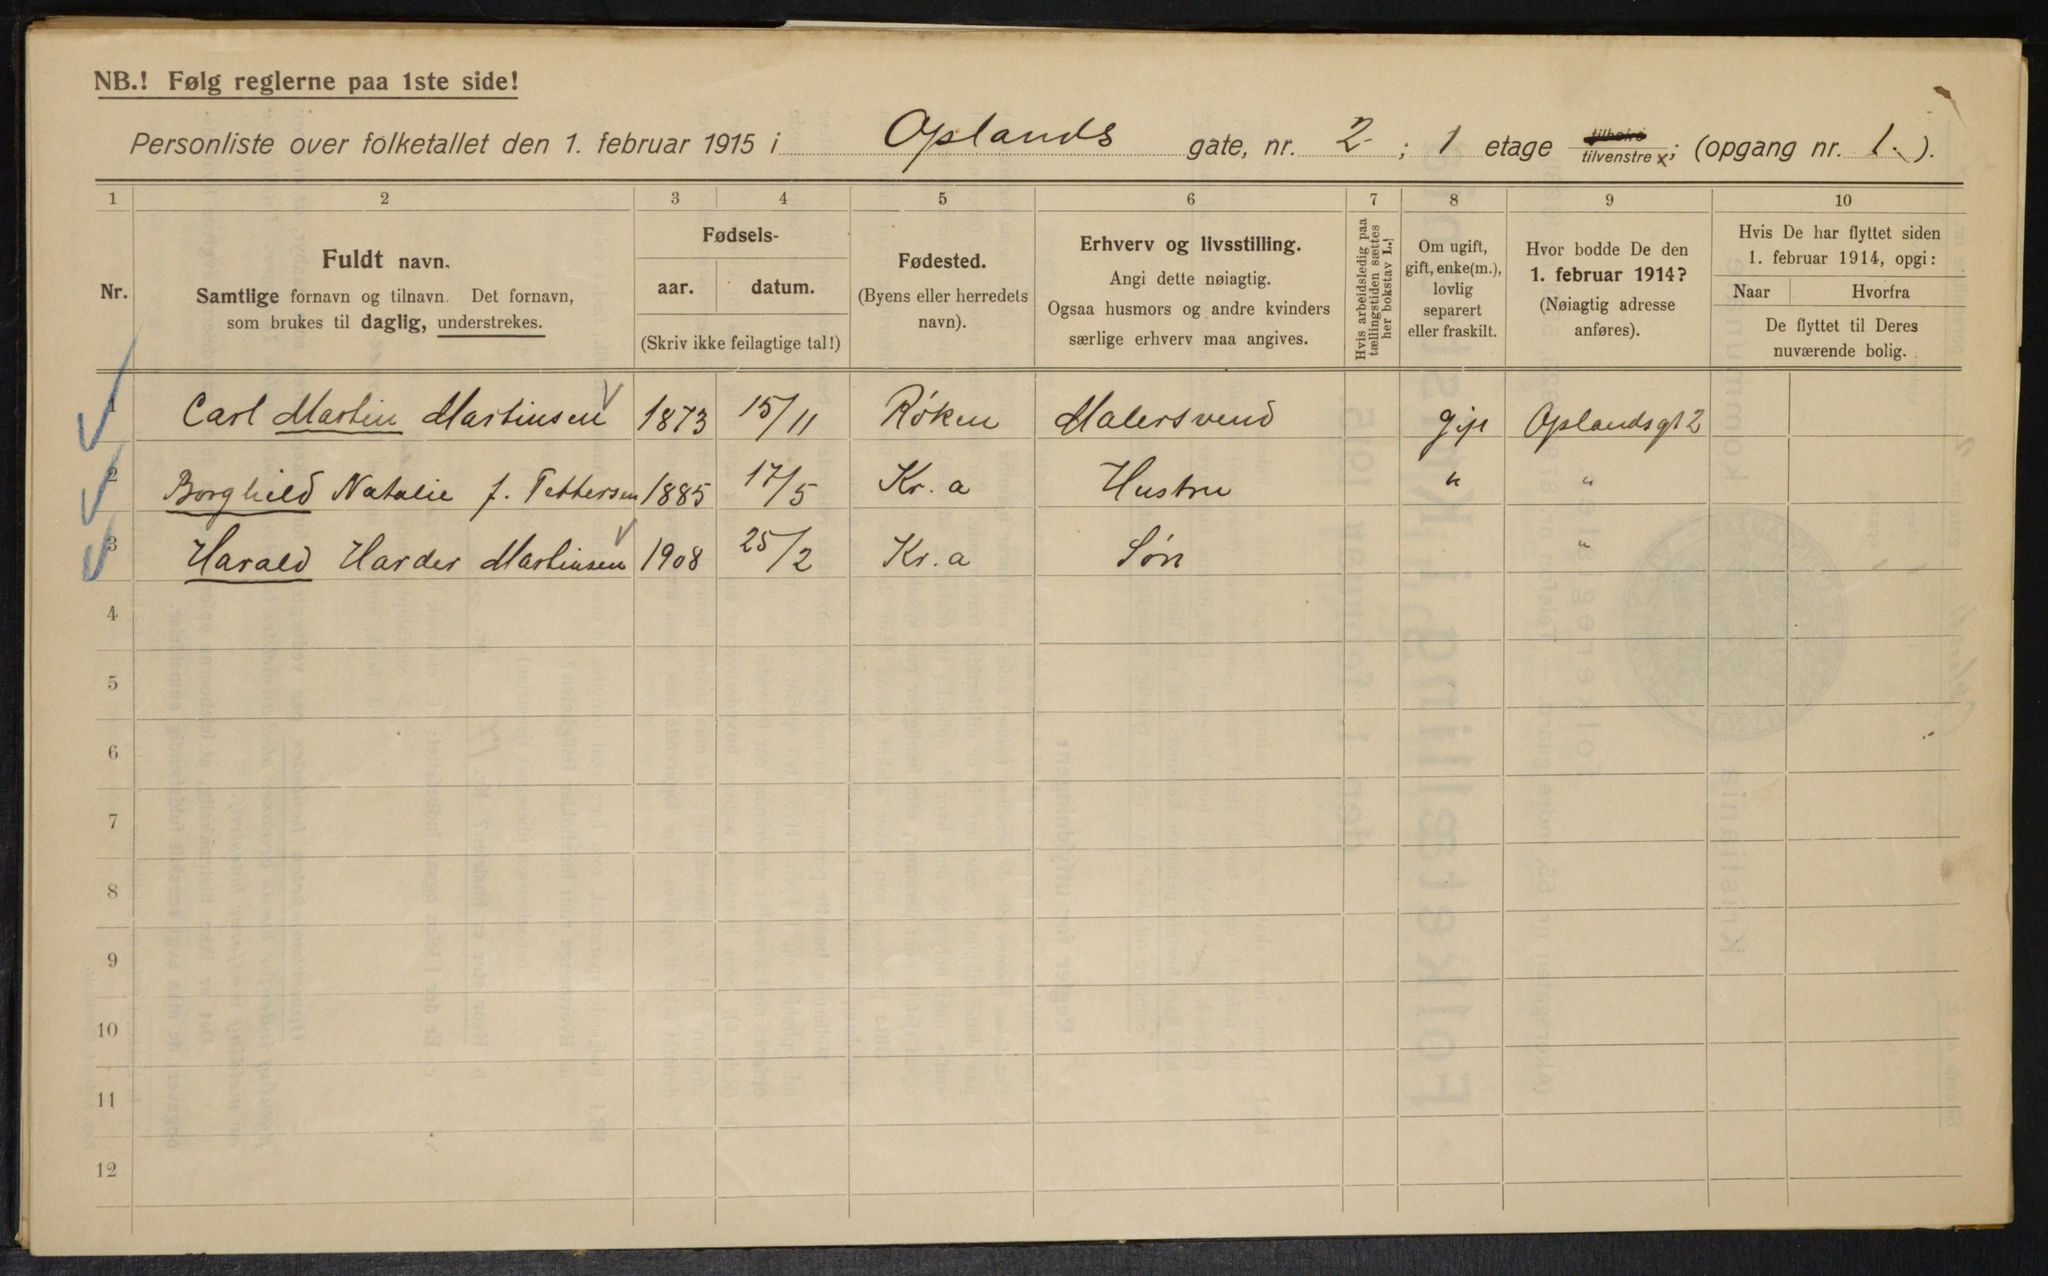 NB.! Følg reglerne paa 1ste side!
Personliste over folketallet den 1. februar 1915 i Oplands gate, nr. 2 ; 1 etage tilhøire tilvenstre x; (opgang nr. 1. ).
1 2 3 4 5 6 7 8 9 10
Nr.
Fuldt navn.
Samtlige fornavn og tilnavn. Det fornavn,
som brukes til daglig, understrekes.
Fødsels-
aar. datum.
(Skriv ikke feilagtige tal!)
Fødested.
(Byens eller herredets
navn).
Erhverv og livsstilling.
Angi dette nøiagtig.
Ogsaa husmors og andre kvinders
særlige erhverv maa angives.
Hvis arbeidsledig paa
tællingstiden sættes
her bokstav L.!
Om ugift,
gift, enke(m.),
lovlig
separert
eller fraskilt.
Hvor bodde De den
1. februar 1914?
(Nøiagtig adresse
anføres).
Hvis De har flyttet siden
1. februar 1914, opgi:
Naar Hvorfra
De flyttet til Deres
nuværende bolig.
1 Carl Martin Martinsen 1873 15/11 Røken Malersvend gift Oplandsgt 2
2 Borghild Natalie f. Pettersen 1885 17/5 Kr. a Hustru " "
3 Harald Harder Martinsen 1908 25/2 Kr. a Søn "
4
5
6
7
8
9
10
11
12